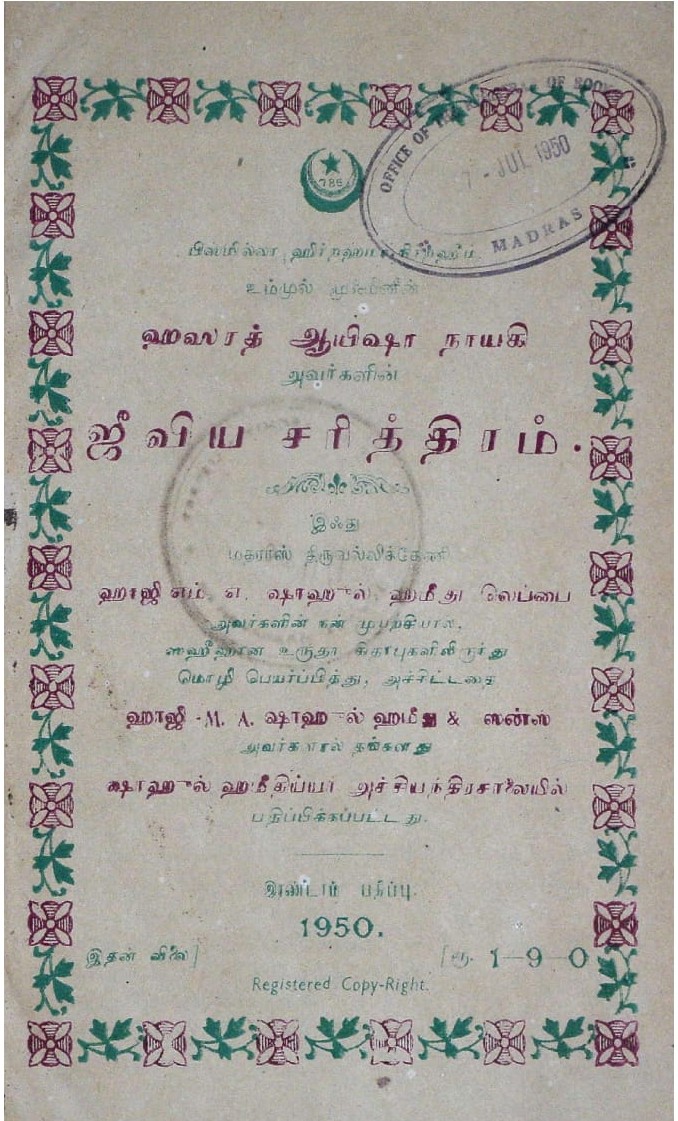 786
OFFICE OF THE REGISTRAR OF BOOKS
7 - JUL 1950
MADRAS
பிஸ்மில்லா ஹிர்றஹ்மா னிர்றஹீம்
உம்முல் முஃமினீன்
ஹஸரத் ஆயிஷா நாயகி
அவர்களின்
ஜீவிய சரித்திரம்.
இஃது
மதராஸ் திருவல்லிக்கேணி
ஹாஜி எம். ஏ. ஷாஹுல் ஹமீது லெப்பை
அவர்களின் நன் முயற்சியால்,
ஸஹீஹான உருது கிதாபுகளிலிருந்து
மொழி பெயர்ப்பித்து, அச்சிட்டதை
ஹாஜி M. A. ஷாஹுல் ஹமீது & ஸன்ஸ்
அவர்களால் தங்களது
ஷாஹுல் ஹமீதிய்யா அச்சியந்திரசாலையில்
பதிப்பிக்கப்பட்டது.
இரண்டாம் பதிப்பு.
1950.
இதன் விலை] [ரூ. 1-9-0
Registered Copy-Right.